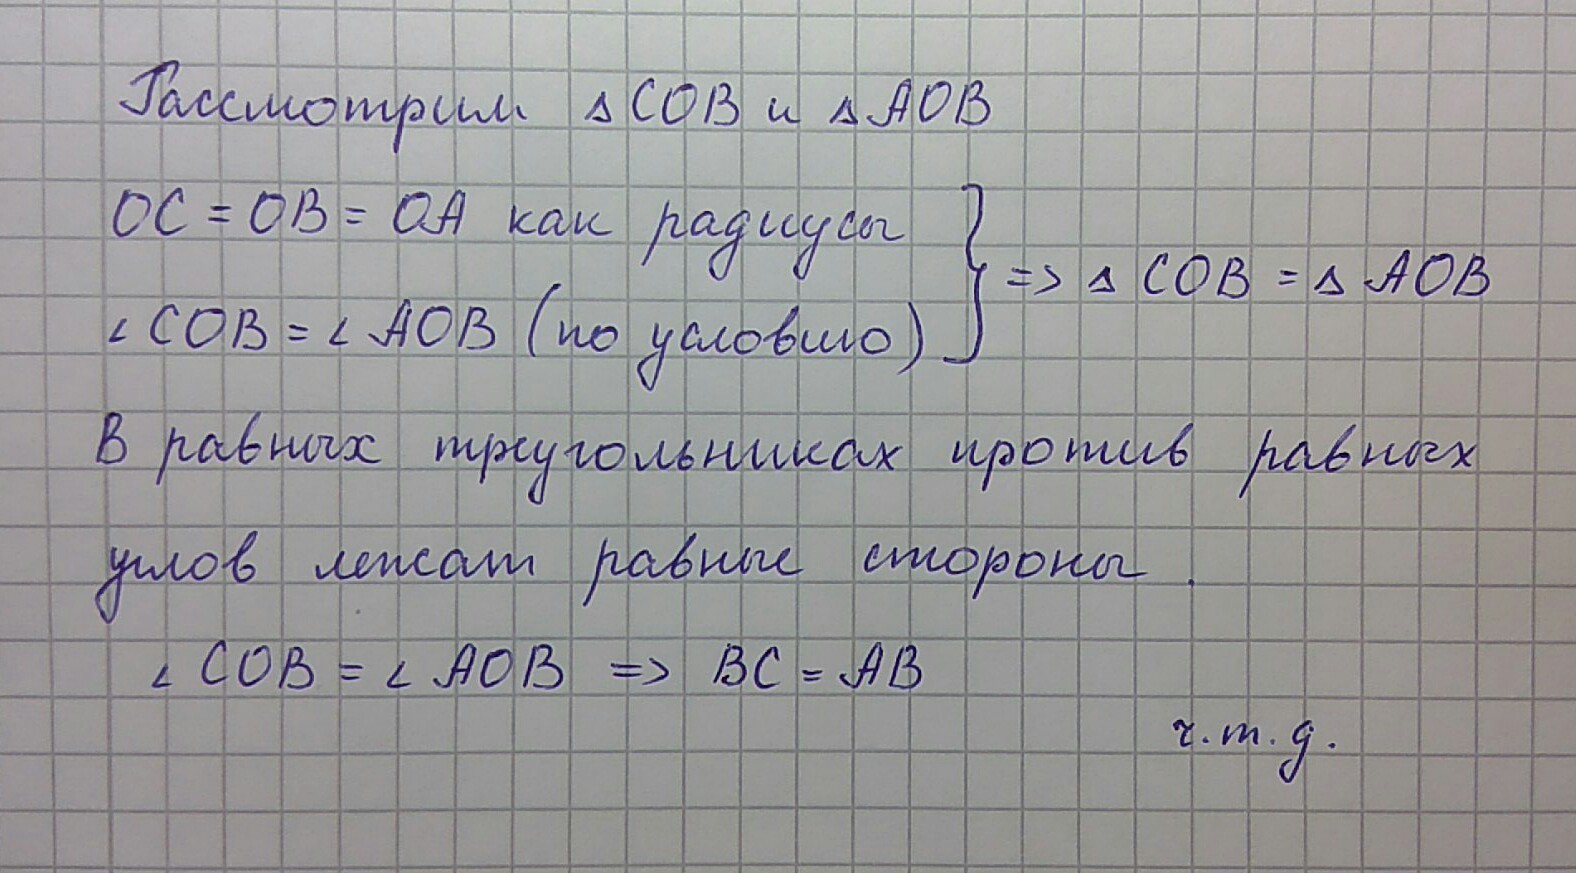 Рассмотрим △COB и △AOB
OC = OB = OA как радиусы
∠COB = ∠AOB (по условию)
} => △COB = △AOB
В равных треугольниках против равных
углов лежат равные стороны.
∠COB = ∠AOB => BC = AB
ч.т.д.